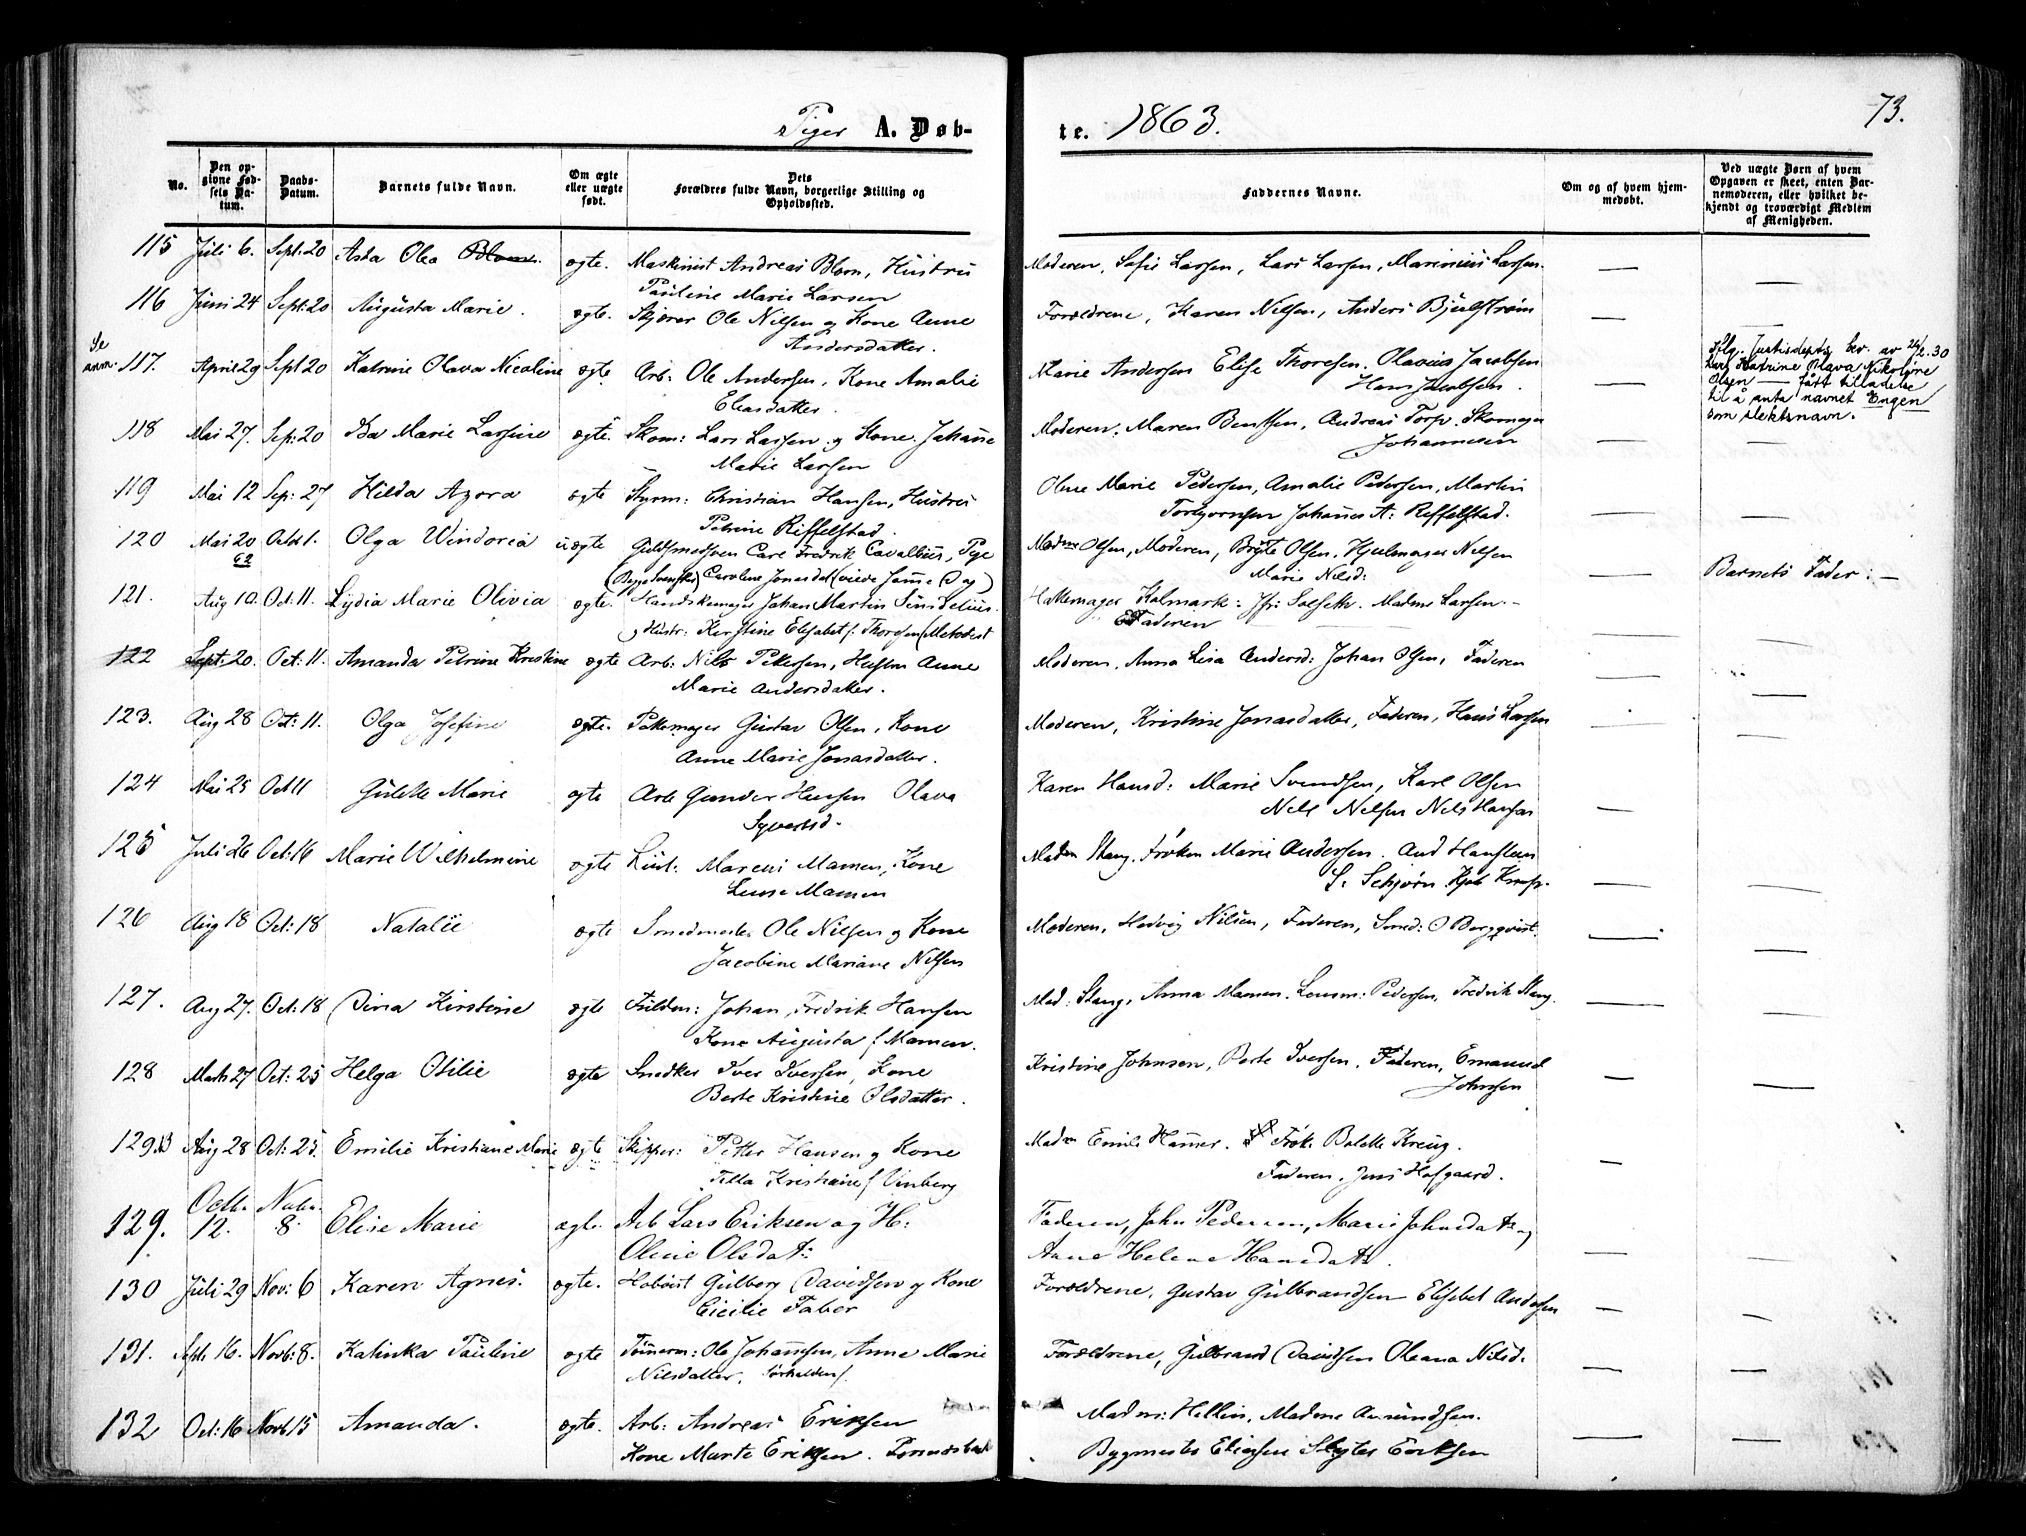 73.
Piger A. Døb-te. 1863.
No.
Den opgivne Fødsels Datum.
Daabs-Datum.
Barnets fulde Navn.
Om ægte eller uægte født.
Dets Forældres fulde Navn, borgerlige Stilling og Opholdssted.
Faddernes Navne.
Om og af hvem hjemmedøbt.
Ved uægte Børn af hvem Opgaven er skeet, enten Barnemoderen, eller hvilket bekjendt og troværdigt Medlem af Menigheden.
115 Juli 6. Sept: 20 Asta Olea Blom. ægte. Maskinist Andreas Blom, Hustru Moderen, Sofie Larsen, Lars Larsen, Marinius Larsen. —
Pauline Marie Larsen —
116 Juni 24 Sept: 20 Augusta Marie. ægte. Skjører Ole Nilsen og Kone Anne Forældrene, Karen Nilsen, Anders Bjulstrøm —
Andersdatter. —
Se anm. 117. April 29 Sept 20 Katrine Olava Nicoline ægte Arb: Ole Andersen, Kone Amalie Marie Andersen Elise Thoresen, Olavus Jacobsen
Eleasdatter. Hans Jacobsen. —
Iflg. Justisdepts bev. av 24/2.30
har Katrine Olava Nikoline
Olsen — fått tilladelse
til å anta navnet Engen
som slektsnavn.
118 Mai 27. Sep: 20 Ida Marie Larsine ægte. Skom: Lars Larsen og Kone Johanne Moderen, Maren Bentsen, Andreas Torp. Skomager
Marie Larsen Johannesen — —
119 Mai 12 Sep: 27 Hilda Azora ægte Styrm: Christian Hansen, Hustru Oline Marie Pedersen, Amalie Pedersen, Martin
Petrine Riffelstad. Torbjornsen Johannes A: Reffelstad. — —
120 Mai 20 62 Octob 1. Olga Windoria uægte Guldsmedsven Carl Fredrik Cavallius, Pige Madme Olsen, Moderen, Brynte Olsen, Hjulmager Nilsen
Caroline Jonasdat Marie Nilsd: — Barnets Fader: —
121. Aug 10. Oct: 11. Lydia Marie Olivia ægte. Handskemager Johan Martin Sundelius. Hattemager Kolmark: Jfr: Solseth. Madme Larsen. —
og Hustr: Kerstine Elisabet f: Thoresen (Metodist Faderen
122 Sept: 20. Oct: 11. Amanda Petrine Kristine ægte Arb: Nils Pettersen, Hustru Anne Moderen, Anna Lisa Andersd: Johan Olsen, Faderen —
Marie Andersdatter. —
123. Aug 28 Oct: 11. Olga Josefine ægte. Pottemager Gustav Olsen, Kone Moderen, Kristine Jonasdatter, Faderen, Hans Larsen —
Anne Marie Jonasdatter. —
124 Mai 25 Oct 11 Gulette Marie ægte Arb Gunder Hansen Olava Karen Hansd: Marie Svendsen, Karl Olsen
Syvertsd. Nels Nelsen Nels Hansen —
125 Juli 26 Oct: 16 Marie Wilhelmine ægte Liut: Marcus Mamen, Kone Madm Stang, Frøken Marie Andersen. And Hanssen
Lense Mamen S: Schjørn. — —
126 Aug 18 Oct: 18 Natalie ægte Smedmester Ole Nilsen og Kone Moderen, Hedvig Nilsen, Faderen, Smed: O Bergqvist. —
Jacobine Mariane Nilsen —
127. Aug 27. Oct: 18 Dina Kirstine ægte Fuldm: Johan Fredrik Hansen Mad: Stang, Anna Mamen. Lensm: Pedersen, Fredrik Stang. —
Kone Augusta f Mamen. —
128 Marts 27 Oct: 25 Helga Otilie ægte Snedker Iver Iversen, Kone Kristine Johnsen, Berte Iversen, Faderen, Emanuel
Berte Kristine Olsdatter. Johnsen — —
129.B Aug 28 Oct: 25. Emilie Kristiane Marie ægte Skipper: Petter Hansen og Kone Madm Emile Hamer. Frøk: Bolette Kreug.
Tilla Kristiane f Vinberg Faderen, Jens Hofgaard. —
129. Octb. 12. Novbr. 8. Elise Marie ægte. Arb Lars Eriksen og H: Faderen, John Pedersen, Marie Johnsdatr og
Oline Olsdat: Anne Helene Hansdatr. — —
130 Juli 29 Nov: 6 Karen Agnes. ægte. Hoboist Gulborg Davidsen og Kone Forældrene, Gustav Gulbrandsen Elisebet Andersen —
Cicilie Faber —
131. Sept 16. Novb: 8. Katinka Pauline ægte Tømerm: Ole Johansen, Anne Marie Forældrene, Gulbrand Davidsen Oleana Nilsd. —
Nilsdatter. —
132 Oct: 16 Novb 15 Amanda. ægte. Arb: Andreas Eriksen Madm: Hellin, Madme Amundsen.
Kone Marte Eriksen. Bygmester Eliasen Slagter Eriksen — —